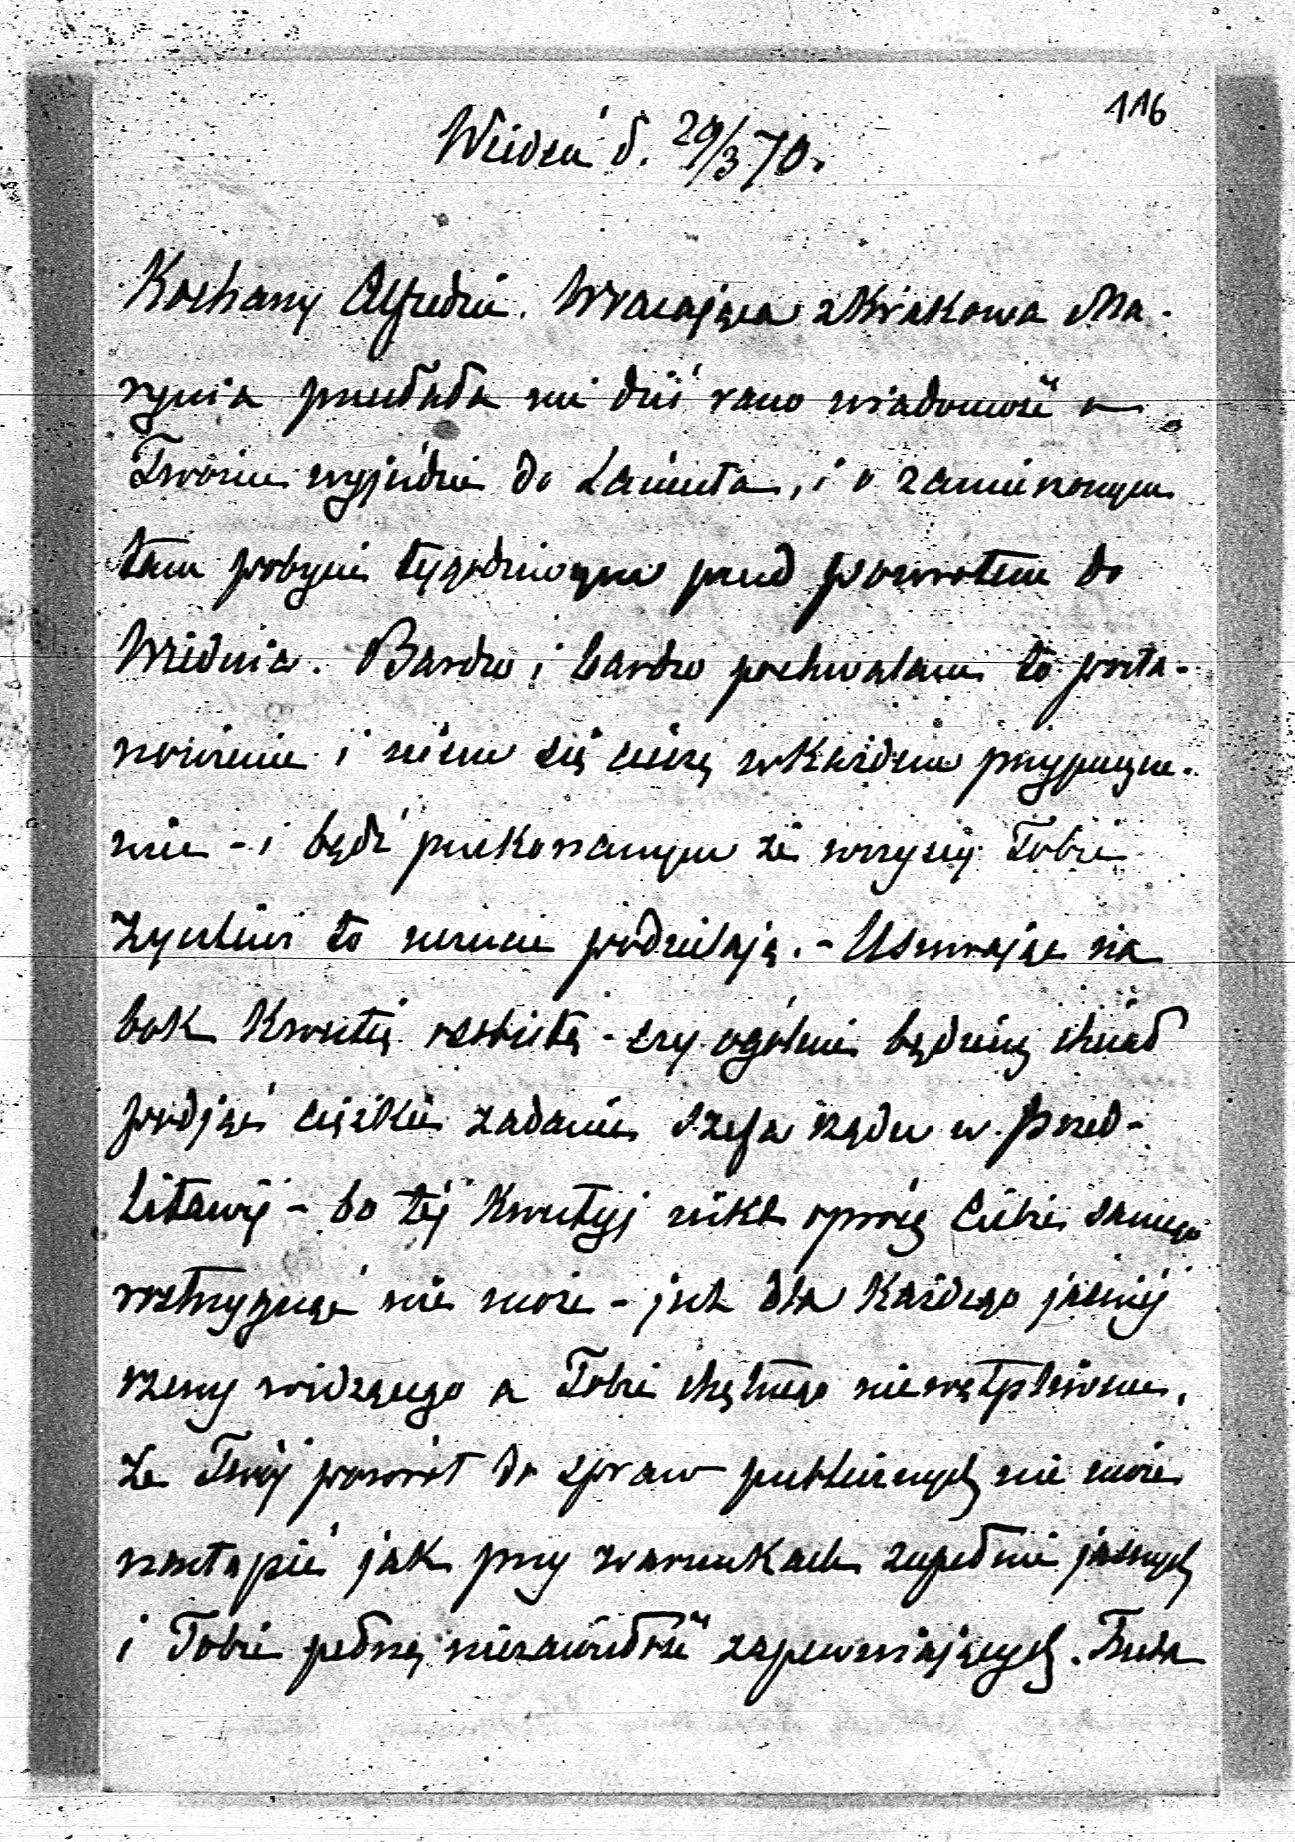 116
Wiedeń d. 29/3 70.
Kochany Alfredzie. Wracająca z Krakowa Ma-
rynia przesłała mi dziś rano wiadomość o
Twoim wyjeździe do Łańcuta, i o zamierzonym
tam pobycie tygodniowym przed powrotem do
Wiednia. Bardzo i bardzo pochwalam to posta-
nowienie i niem się cieszę w każdem przypuszcze-
nie - i bądź przekonanym że wszyscy Tobie
życzliwi to uczucie podzielają. - Usuwając na
bok kwestię osobistą - czy ogólnie będziesz chciał
podjąć ciężkie zadanie szefa rządu w Przed-
litawij - bo téj kwestyj nikt oprócz Ciebie samego
rozstrzygnąć nie może - jest dla każdego jaśniéj
rzeczy widzącego a Tobie chętnego niewątpliwem,
że Twój powrót do spraw publicznych nie może
nastąpić jak przy warunkach zupełnie jasnych
i Tobie pełną niezawisłość zapewniających. Trzeba